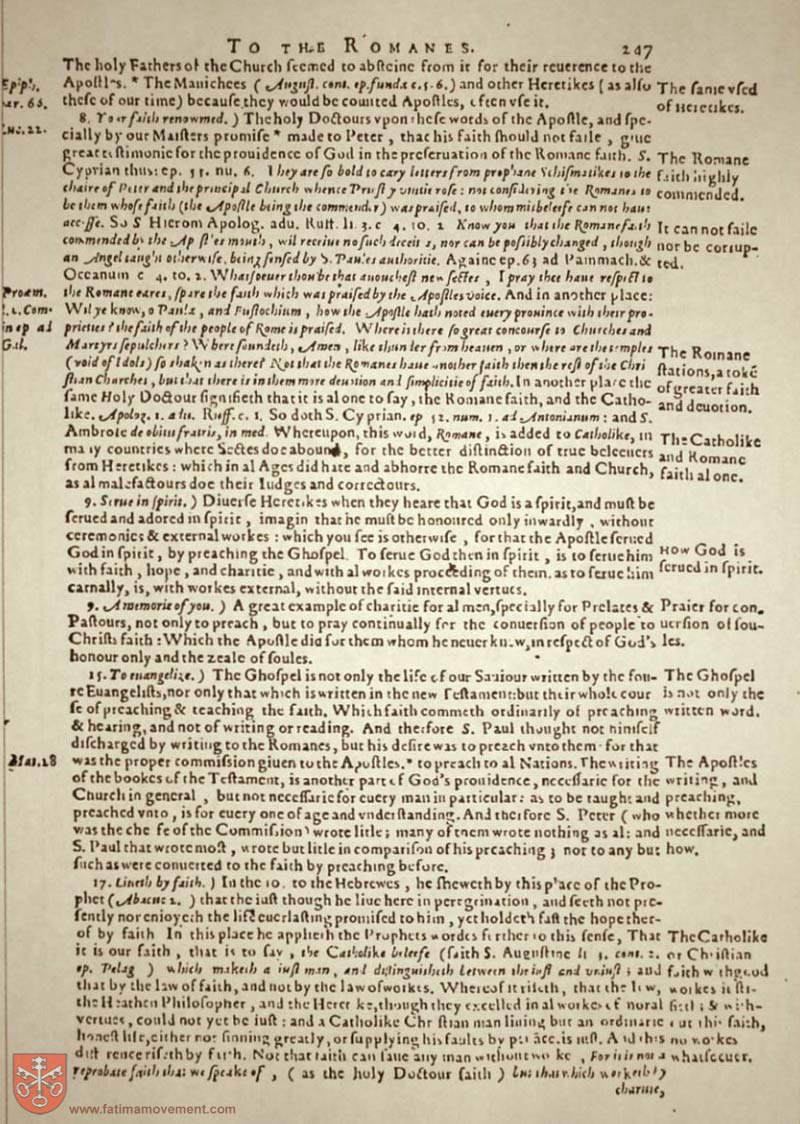 TO THE ROMANES. 247
The holy Fathers of the Church ſeemed to abſteine from it for their reuerence to the
Apoſtles. * The Manichees ( Auguſt. cont. ep. fund. c. 5. 6. ) and other Heretikes ( as alſo
theſe of our time) becauſe they would be counted Apoſtles, often vſe it.
8. Your faith renowmed. ) The holy Doctours vpon theſe words of the Apoſtle, and ſpe-
cially by our Maiſters promiſe * made to Peter , that his faith ſhould not faile , giue
great teſtimonie for the prouidence of God in the preſeruation of the Romane faith. S.
Cyprian thus: ep. 55. nu. 6. They are ſo bold to cary letters from prophane Schiſmatikes to the
chaire of Peter and the principal Church whence Prieſtly vnitie roſe : not conſidering the Romanes to
be them whoſe faith (the Apoſtle being the commender) was praiſed, to whom misbeleefe can not haue
acceſſe. So S Hierom Apolog. adu. Ruff. li. 3. c 4. to. 2 Know you that the Romane faith
commended by the Apoſtles mouth, wil receiue no ſuch deceits, nor can be poſſibly changed , though
an Angel taught otherwiſe, being fenſed by S. Paules authoritie. Againe ep. 63 ad Pammach. &
Oceanum c 4. to. 2. Whatſoeuer thou be that auoucheſt new ſectes , I pray thee haue reſpect to
the Romane eares, ſpare the faith which was praiſed by the Apoſtles voice. And in another place:
Wil ye know, o Paula , and Euſtochium , how the Apoſtle hath noted euery prouince with their pro-
prieties? the faith of the people of Rome is praiſed. Where is there ſo great concourſe to Churches and
Martyrs ſepulchers? Where ſoundeth, Amen , like thunder from heauen , or where are the temples
(void of Idols) ſo shaken as there? Not that the Romanes haue another faith then the reſt of the Chri
ſtian Churches, but that there is in them more deuotion and ſimplicitie of faith. In another place the
ſame Holy Doctour ſignifieth that it is al one to ſay , the Romane faith, and the Catho-
like. Apolog. 1. adu. Ruff. c. 1. So doth S. Cyprian. ep 52. num. 1. ad Antonianum : and S.
Ambroſe de obitu fratris, in med. Whereupon, this word, Romane , is added to Catholike, in
many countries where Sectes doe abound, for the better diſtinction of true beleeuers
from Heretikes : which in al Ages did hate and abhorre the Romane faith and Church,
as al malefactours doe their Iudges and correctours.
9. Serue in ſpirit. ) Diuerſe Heretikes when they heare that God is a ſpirit, and muſt be
ſerued and adored in ſpirit , imagin that he muſt be honoured only inwardly , without
ceremonies & external workes : which you ſee is otherwiſe , for that the Apoſtle ſerued
God in ſpirit, by preaching the Ghoſpel. To ſerue God then in ſpirit , is to ſerue him
with faith , hope , and charitie , and with al workes proceeding of them. as to ſerue him
carnally, is, with workes external, without the ſaid internal vertues.
9. A memorie of you. ) A great example of charitie for al men, ſpecially for Prelates &
Paſtours, not only to preach , but to pray continually for the conuerſion of people to
Chriſts faith : Which the Apoſtle did for them whom he neuer knew, in reſpect of God's
honour only and the zeale of ſoules.
15. To euangelize. ) The Ghoſpel is not only the life of our Sauiour written by the fou-
re Euangeliſts, nor only that which is written in the new Teſtament: but their whole cour
ſe of preaching & teaching the faith. Which faith commeth ordinarily of preaching
& hearing, and not of writing or reading. And therfore S. Paul thought not himſelf
diſcharged by writing to the Romanes, but his deſire was to preach vnto them. for that
was the proper commiſſion giuen to the Apoſtles. * to preach to al Nations. The writing
of the bookes of the Teſtament, is another part of God's prouidence, neceſſarie for the
Church in general , but not neceſſarie for euery man in particular: as to be taught and
preached vnto , is for euery one of age and vnderſtanding. And therfore S. Peter ( who
was the cheefe of the Commiſſion) wrote litle; many of them wrote nothing as al: and
S. Paul that wrote moſt , wrote but litle in compariſon of his preaching ; nor to any but
ſuch as were conuerted to the faith by preaching before.
17. Liueth by faith. ) In the 10. to the Hebrewes , he ſheweth by this place of the Pro-
phet ( Abacuc 2. ) that the iuſt though he liue here in peregrination , and ſeeth not pre-
ſently nor enioyeth the life euerlaſting promiſed to him , yet holdeth faſt the hope ther-
of by faith In this place he applieth the Prophets wordes further to this ſenſe, That
it is our faith , that is to ſay , the Catholike beleefe (ſaith S. Auguſtine li 3. cont. 2.
ep. Pelag ) which maketh a iuſt man , and diſtinguiſheth between the iuſt and vniuſt ; and
that by the law of faith, and not by the law of workes. Whereof it riſeth, that the Iew,
the Heathen Philoſopher , and the Heretike, though they excelled in al workes of moral
vertues, could not yet be iuſt : and a Catholike Chriſtian man liuing but an ordinarie
honeſt life, either not ſinning greatly, or ſupplying his faults by penance, is iuſt. And this
difference riſeth by faith. Not that faith can ſaue any man without workes , For it is not a
reprobate faith that we ſpeake of , ( as the holy Doctour ſaith ) but that which worketh by
charitie,
Epiph.
hær. 66.
Luc. 22.
Proæm.
l. 2. Com.
in ep ad
Gal.
Mat. 28
The ſame vſed
of Heretikes.
The Romane
faith highly
commended.
It can not faile
nor be corrup-
ted.
The Romane
ſtations, a tokē
of greater faith
and deuotion.
The Catholike
and Romane
faith al one.
How God is
ſerued in ſpirit.
Praier for con.
uerſion of ſou-
les.
The Ghoſpel
is not only the
written word.
The Apoſtles
writing , and
preaching,
whether more
neceſſarie, and
how.
The Catholike
or Chriſtian
faith
workes
this faith,
no workes
whatſoeuer.
www.fatimamovement.com